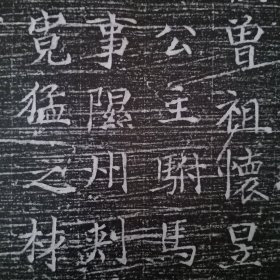 曾祖懷昱
公主駙馬
事隰州刺
寬猛之材